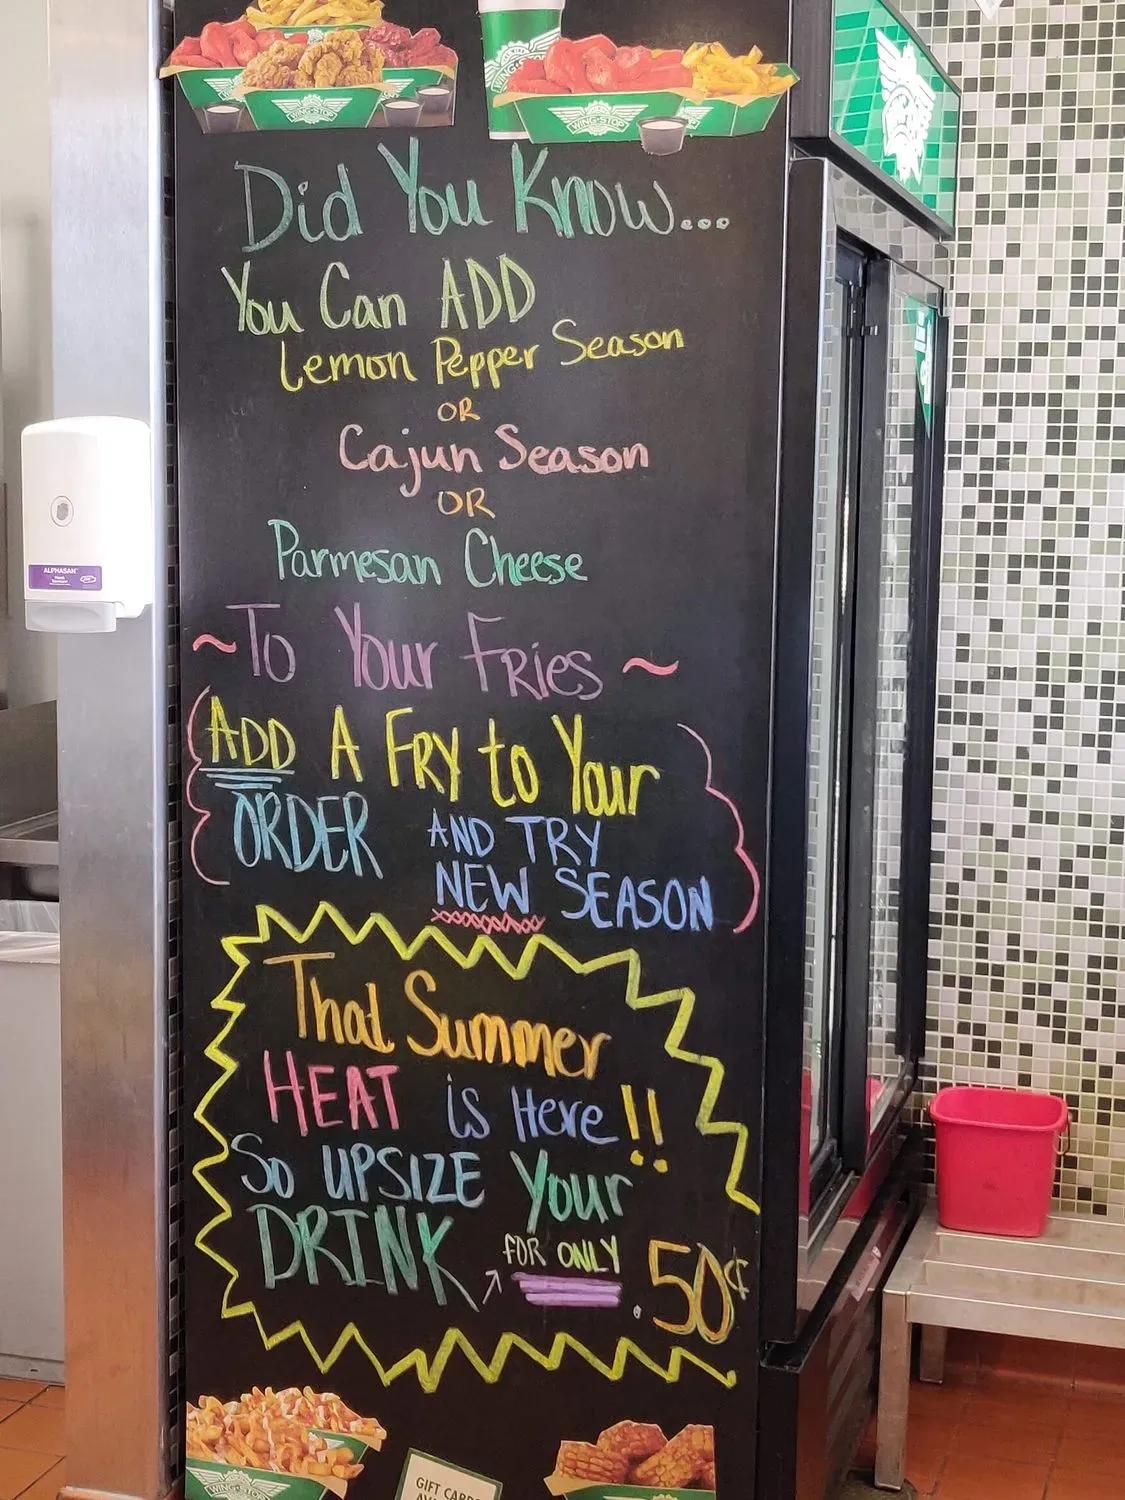 WING·STOP
WING·STOP
Did You Know...
You Can ADD
Lemon Pepper Season
OR
Cajun Season
OR
Parmesan Cheese
~To Your Fries~
ADD A FRY to Your
ORDER AND TRY
NEW SEASON
That Summer
HEAT is Here!!
So UPSIZE Your
DRINK FOR ONLY .50¢
ALPHASAN
GIFT CARDS